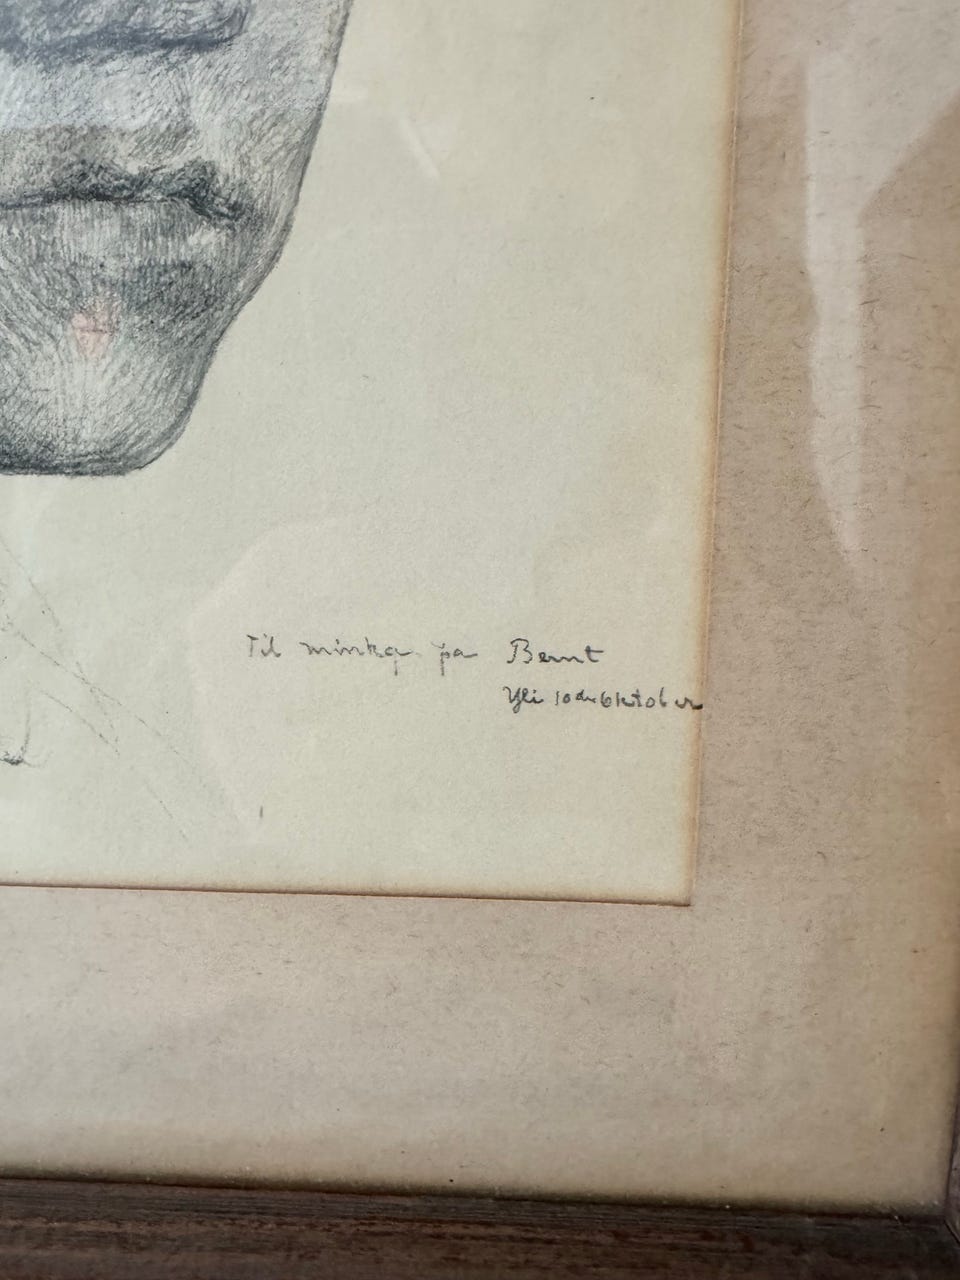 Til minka pa Bernt
Yli 10de Oktober